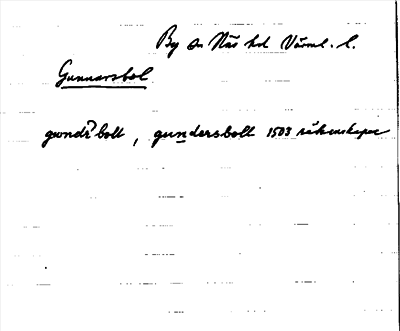 By sn Näs hd Värml. l.
Gunnarsbol
gwndr?bolt, gundersbolt 1503 räkenskaper